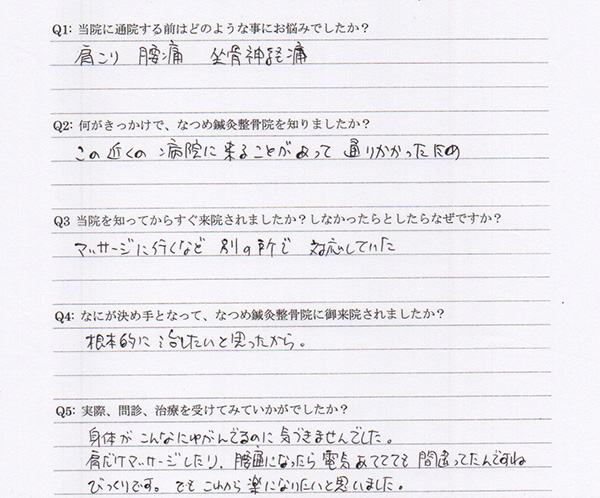 Q1: 当院に通院する前はどのような事にお悩みでしたか？
肩こり 腰痛 坐骨神経痛
Q2: 何がきっかけで、なつめ鍼灸整骨院を知りましたか？
この近くの病院に来ることがあって 通りかかったため
Q3 当院を知ってからすぐ来院されましたか？しなかったらとしたらなぜですか？
マッサージに行くなど 別の所で 対応していた
Q4: なにが決め手となって、なつめ鍼灸整骨院に御来院されましたか？
根本的に治したいと思ったから。
Q5: 実際、問診、治療を受けてみていかがでしたか？
身体がこんなにゆがんでるのに気づきませんでした。
肩だけマッサージしたり、腰痛になったら電気あててても間違ってたんですね
びっくりです。でもこれから楽になりたいと思いました。